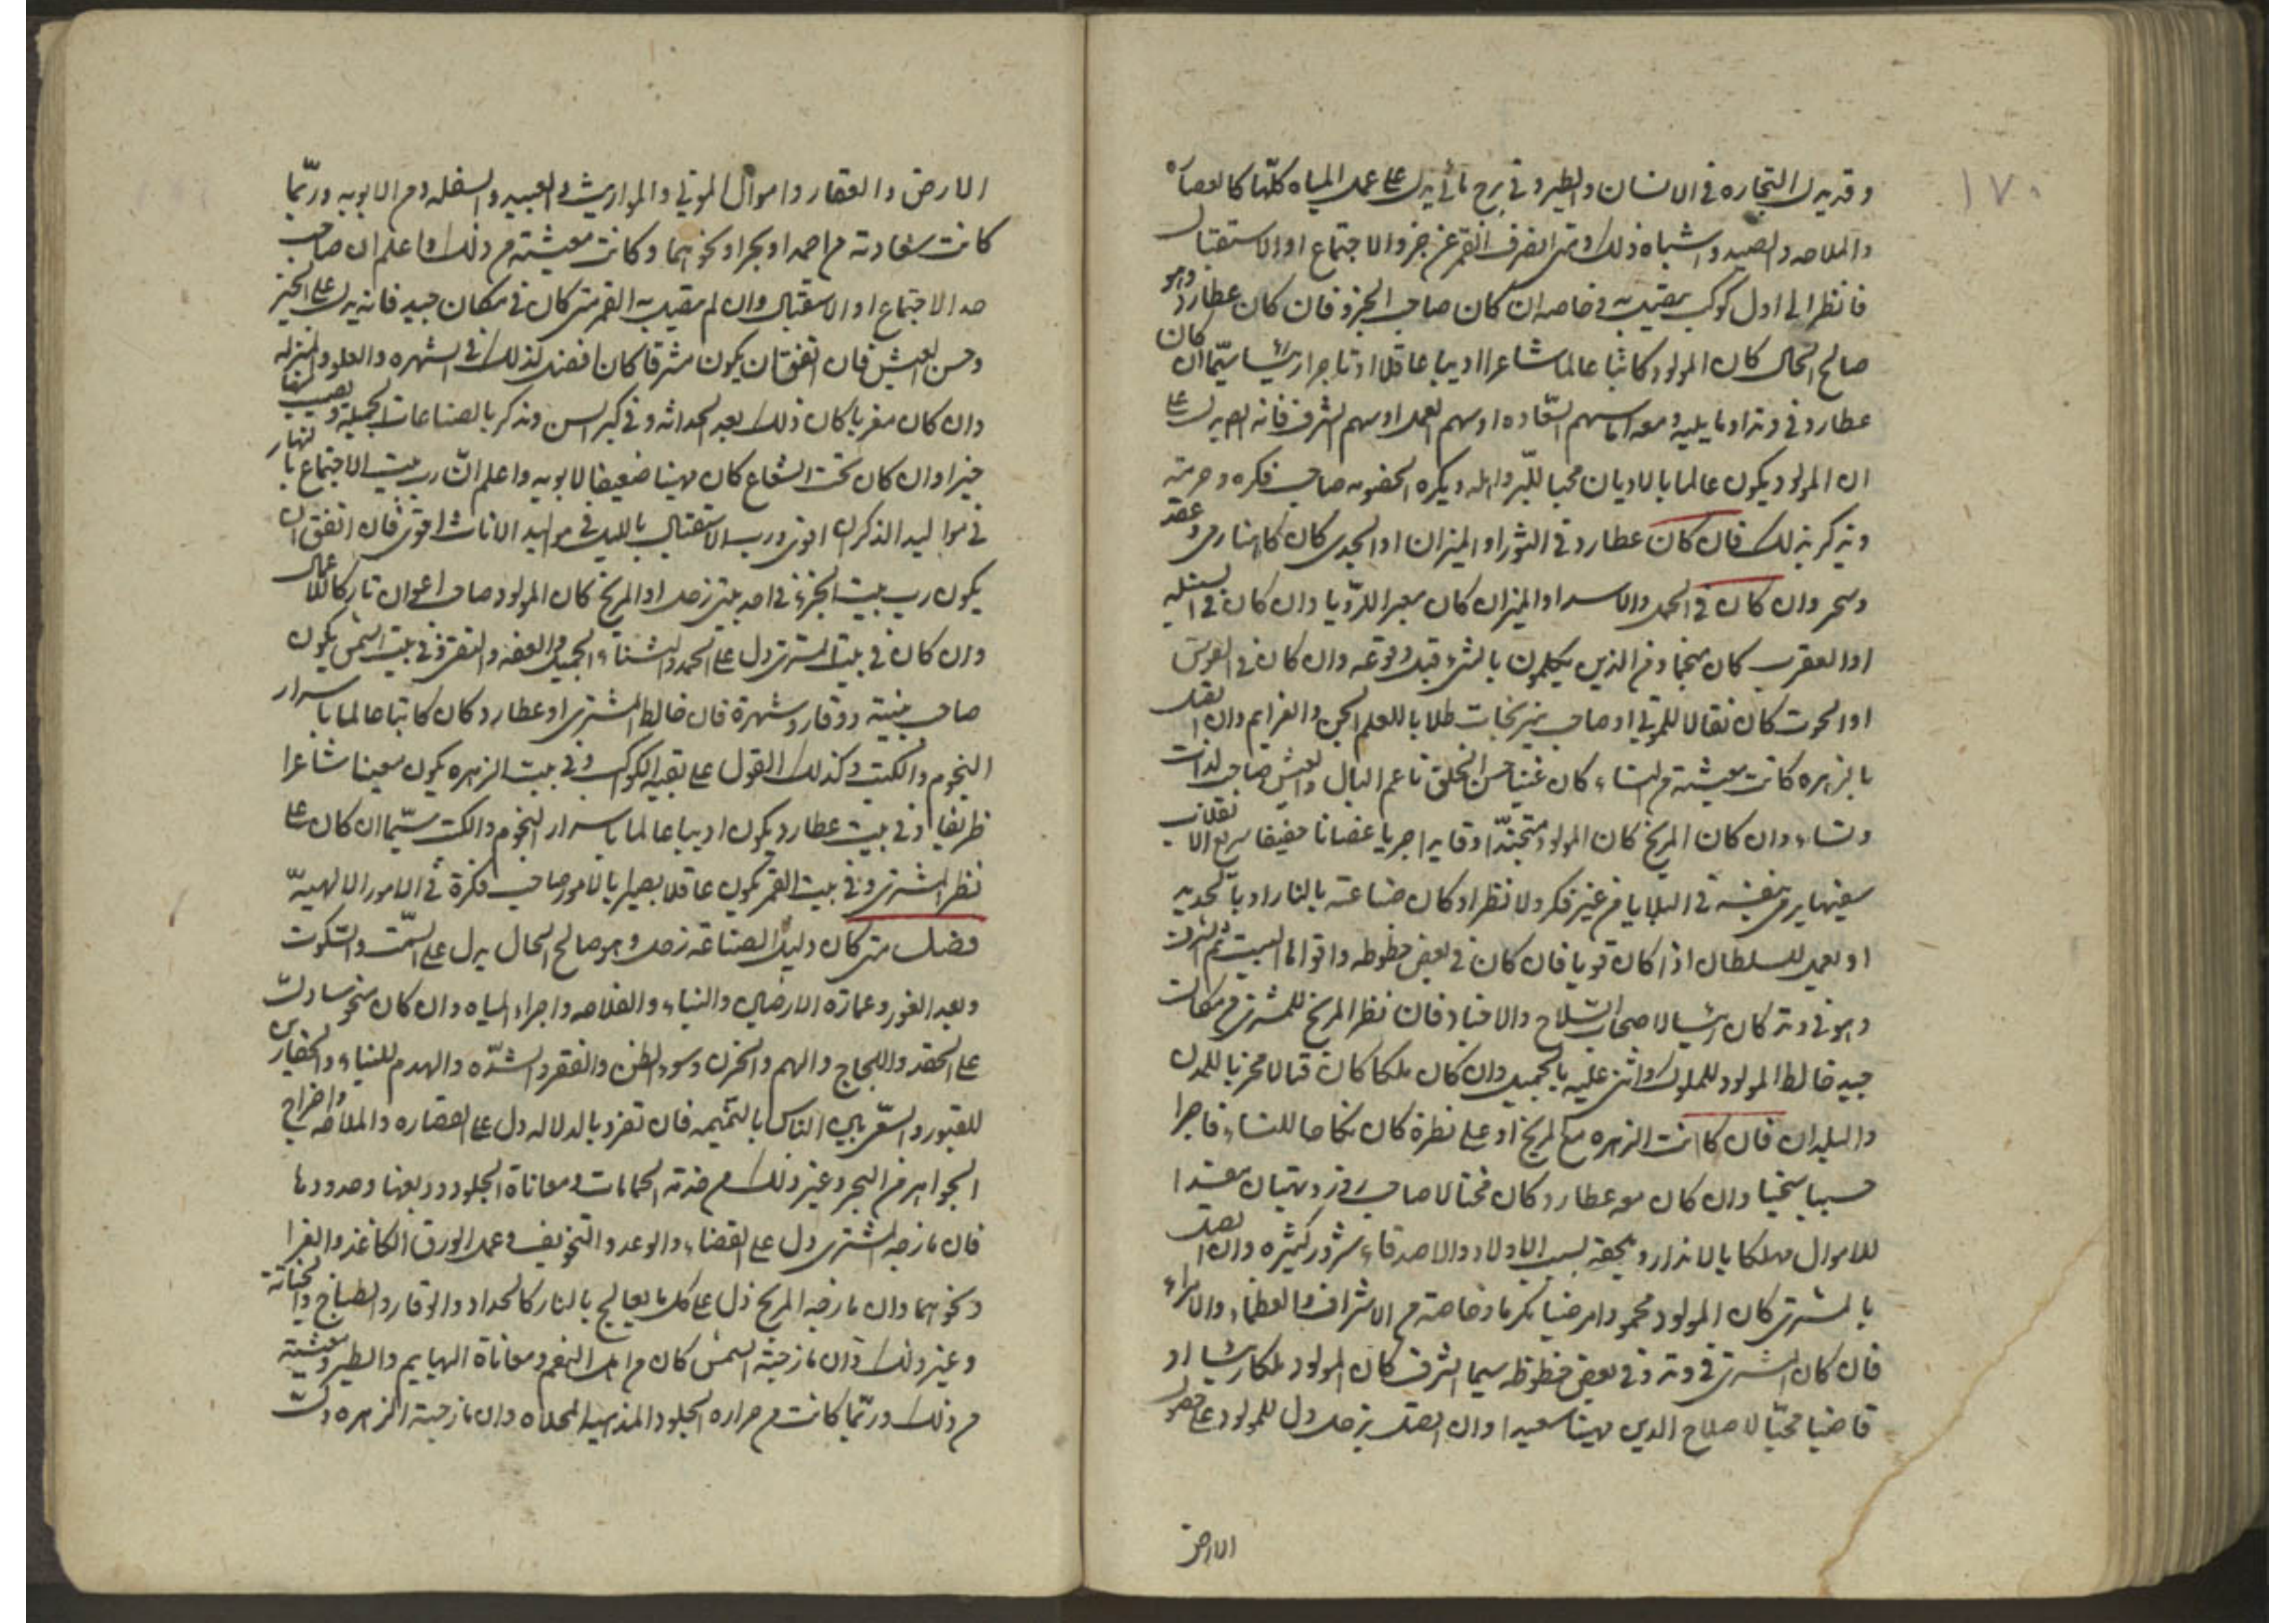 ١٧٠
وقد يدل التجاره في الانسان والطير وفي برج مائي يدل على عمل المياه كلّها كالعصاره
والملاحه والصيد واشباه ذلك ومتى انصرف القمر عن جزو الاجتماع او الاستقبال
فانظر الى اول كوكب يتصل به خاصه ان كان صاحب الجزو فان كان عطارد وهو
صالح الحال كان المولود كاتبا عالما شاعرا اديبا عاقلا او تاجرا رئيسا سيّما ان كان
عطارد في وتد او ما يليه ومعه اما سهم السّعاده او سهم العمل او سهم الشرف فانه يدل على
ان المولود يكون عالما بالاديان محبا للبّر واهله ويكره الخصومه صاحب فكره وحرمة
ويذكر بذلك فان كان عطارد في الثور او الميزان او الجدى كان كاهنا رمى وعقد
وسحر وان كان في الحمل والاسد او الميزان كان معبرا للرّويا وان كان في السنبله
او العقرب كان منجما ومن الذين يتكلمون بالشئ قبل وقوعه وان كان في القوس
او الحوت كان نقالا للموتى او صاحب نيرنجات طلابا للعلم الجن والعزايم وان اتصل
بالزهره كانت معيشته من النساء كان غنيا حسن الخلق ناعم البال والعيش صاحب لذات
ونساء وان كان المريخ كان المولود متجنّدا وقايدا جريا غضبانا خفيفا سريع الانقلاب
سفيها يرمى بنفسه في البلايا من غير فكر ولا نظر او كان صناعته بالنار او بالحديد
او يعمل للسلطان اذا كان قويا فان كان في بعض حظوظه واقواها البيت ثم الشرف
وهو في وتد كان رئيسا لاصحاب السّلاح والاجناد فان نظر المريخ للمشترى من مكان
جيد خالط المولود للملوك واثنى عليه بالجميل وان كان ملكا كان قتالا مخربا للمدن
والبلدان فان كانت الزهره مع المريخ او على نظره كان نكاحا للنساء فاجرا
حسيبا سخيا وان كان معه عطارد كان محتالا صاحب زور وبهتان مفسدا
للاموال مهلكا بالانذار ويلحقه بسبب الاولاد والاصدقاء شرور كثيره وان اتصل
بالمشترى كان المولود محمودا مرضيا مكرما وخاصة من الاشراف والعظماء والامراء
فان كان المشترى في وتد وفي بعض حظوظه سيما الشرف كان المولود ملكا رئيسا او
قاضيا محبّا لاصلاح الدين مهيبا سعيدا وان اتصل بزحل دل للمولود على حصول
الارض
الارض والعقار واموال الموتى والمواريث والعبيد والسفله ومن الابويه وربّما
كانت سعادته من احمد او بحر او نحوهما وكانت معيشته من ذلك واعلم ان صاحب
حد الاجتماع او الاستقبال وان لم يتصل به القمر متى كان في مكان جيد فانه يدل على الخير
وحسن العيش فان اتفق ان يكون مشرقا كان افضل لذلك في الشهره والعلو والمنزله
وان كان مغربا كان ذلك بعد الحداثه وفي كبر السن ويذكر بالصناعات الجميلة ويصيب منها
خيرا وان كان تحت الشعاع كان مهينا ضعيفا لابويه واعلم انّ رب بيت الاجتماع بالنهار
في مواليد الذكران اقوى ورب الاستقبال بالليل في مواليد الاناث اقوى فان اتفق ان
يكون رب بيت الجزء في احد بيتى زحل او المريخ كان المولود صاحب اعوان تاركا للاعمال
وان كان في بيت المشترى دل على الحمد والثناء الجميل والعفه والتقى وفي بيت الشمس يكون
صاحب هيبة ووقار وشهرة فان خالط المشترى او عطارد كان كاتبا عالما باسرار
النجوم والكتب وكذلك القول على بقيه الكواكب وفي بيت الزهره يكون مغنيا شاعرا
ظريفا وفي بيت عطارد يكون اديبا عالما باسرار النجوم والكتب سيّما ان كان على
نظر المشترى وفي بيت القمر يكون عاقلا بصيرا بالامور صاحب فكرة في الامور الالهيّه
فصل متى كان دليل الصناعه زحل وهو صالح الحال يدل على السّمت والسّكوت
وبعد الغور وعمارة الارضين والبناء والفلاحه واجراء المياه وان كان منحوسا دلّ
على الحقد واللجاج والهم والحزن وسوء الظن والفقر والشدّه والهدم للبناء والحفارين
للقبور والسّعى بين الناس بالنّميمه فان تفرد بالدلاله دل على العصاره والملاحه واخراج
الجواهر من البحر وغير ذلك من خدمة الحمامات ومعاناة الجلود ودبغها وحدودها
فان مازجه المشترى دل على القضاء والوعد والتخويف وعمل الورق الكاغذ والفرا
ونحوهما وان مازجه المريخ دل على كل ما يعالج بالنار كالحداد والوقار والطباخ والخباز
وغير ذلك وان مازجته الشمس كان من اهل النعم ومعاناة البهايم والطير ومعيشته
من ذلك وربّما كانت من حراره الجلود المذهبه المحلاه وان مازجته الزهره دلّت